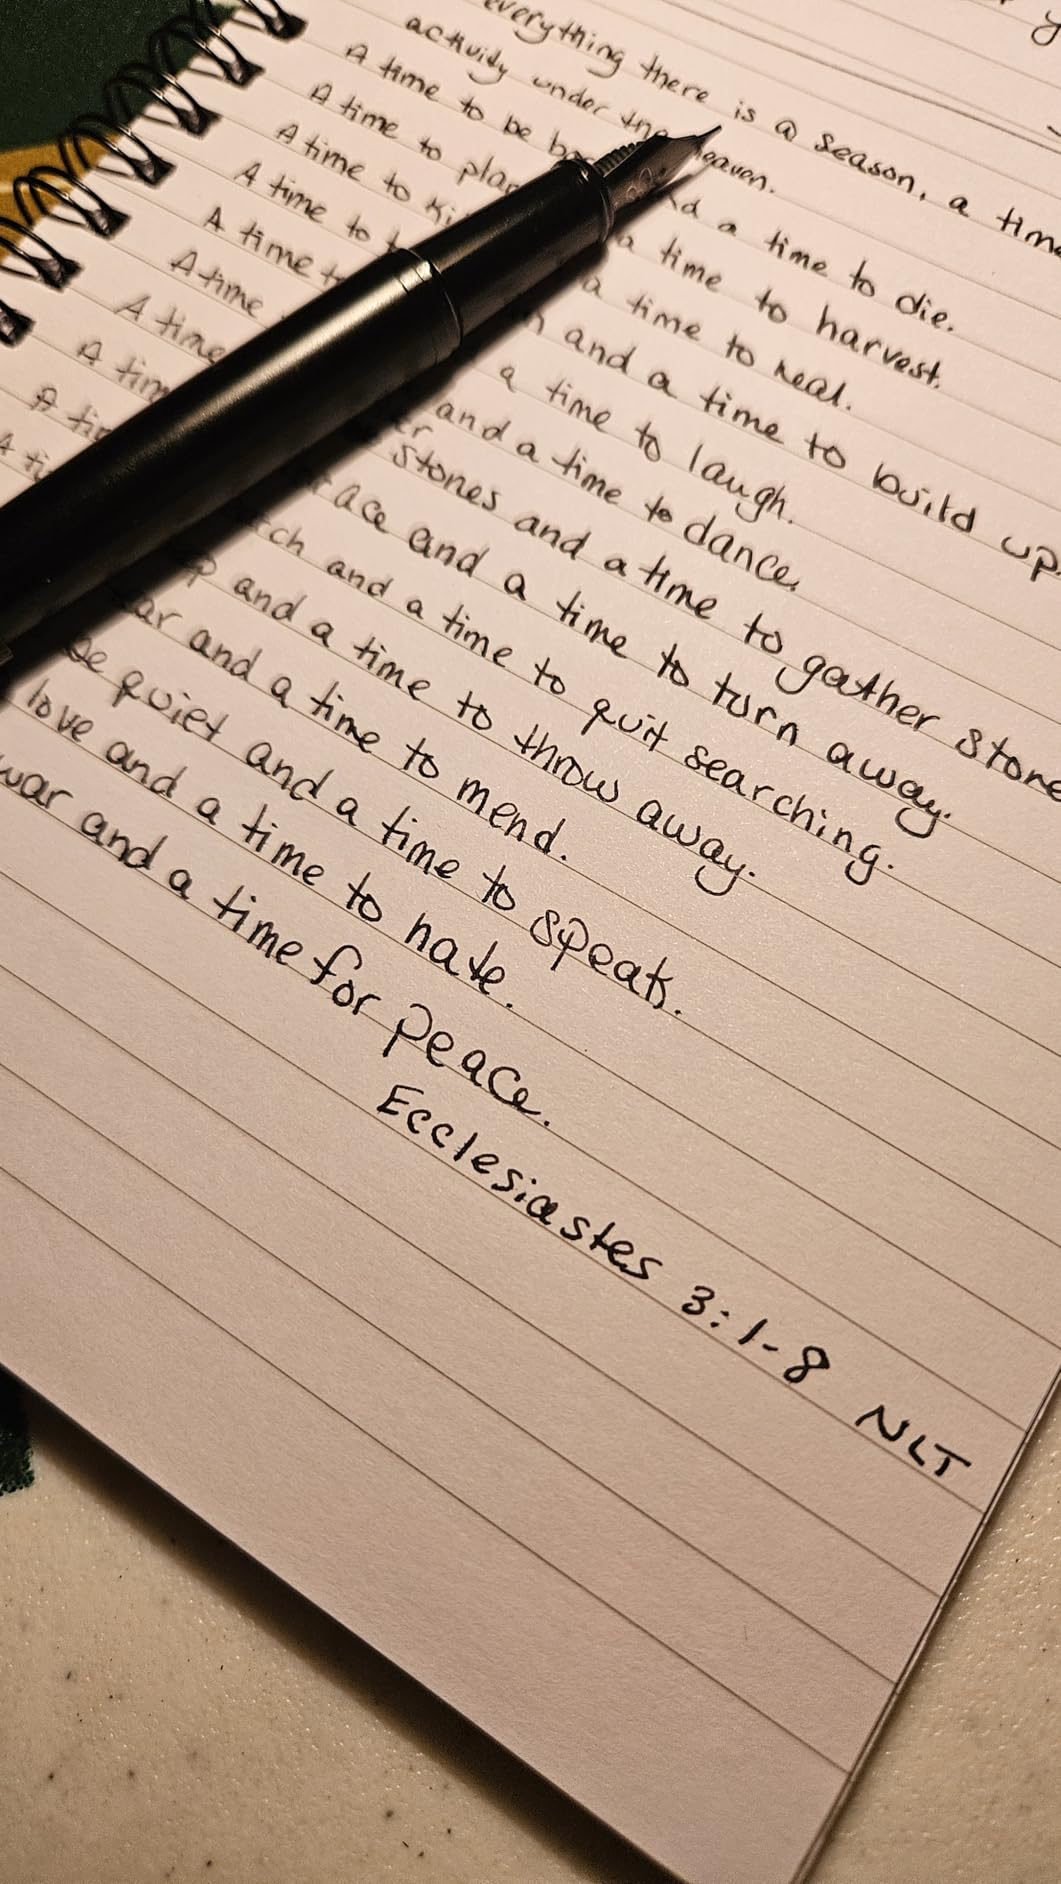 everything there is a season, a time
activity under the heaven.
A time to be and a time to die.
A time to a time to harvest.
A time to a time to heal.
A time to and a time to build up.
A time a time to laugh.
A time and a time to dance.
A time stones and a time to gather stone
A time and a time to turn away.
and a time to quit searching.
and a time to throw away.
and a time to mend.
be quiet and a time to speak.
love and a time to hate.
war and a time for peace.
Ecclesiastes 3:1-8 NLT